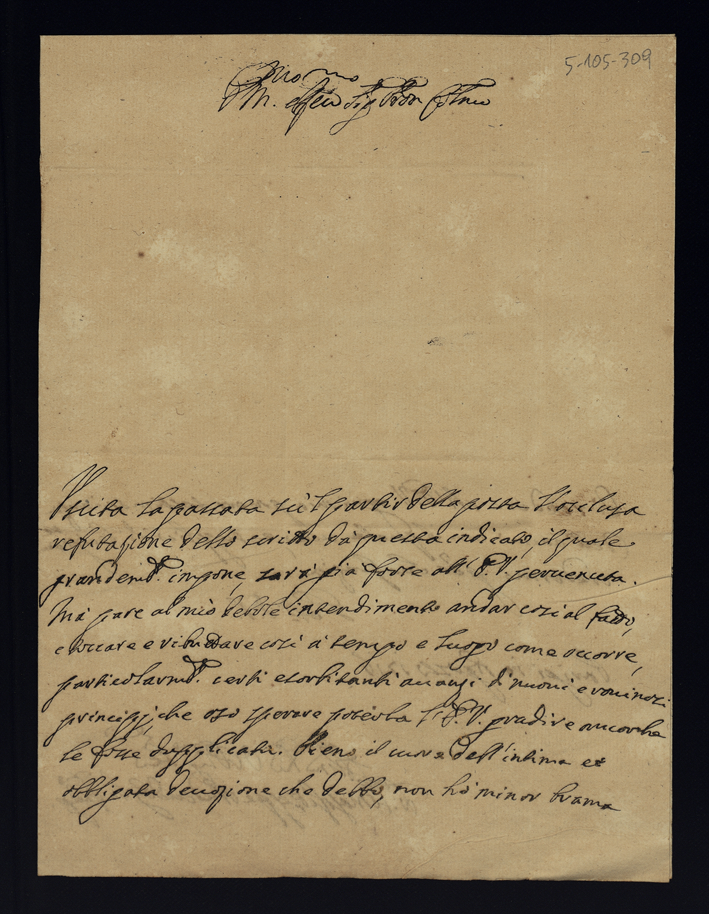 5-105-309
Uscita la passata sù 'l partir della posta l'occlusa
refutazione dello scritto da questa indicato, il quale
grandem.te impone, sarà già forse all' P.V. pervenuta.
Mà pare al mio debole intendimento andar così al fatto,
e toccare e ributtare così à tempo e luogo come occorre,
particolarm.te certi esorbitanti avanzi di nuovi e rovinosi
principij, che oso sperare poterla l' P.V. gradire ancorche
le fosse dupplicata. Pieno il cuore dell'intima et
obbligata devozione che debbo, non hò minor brama